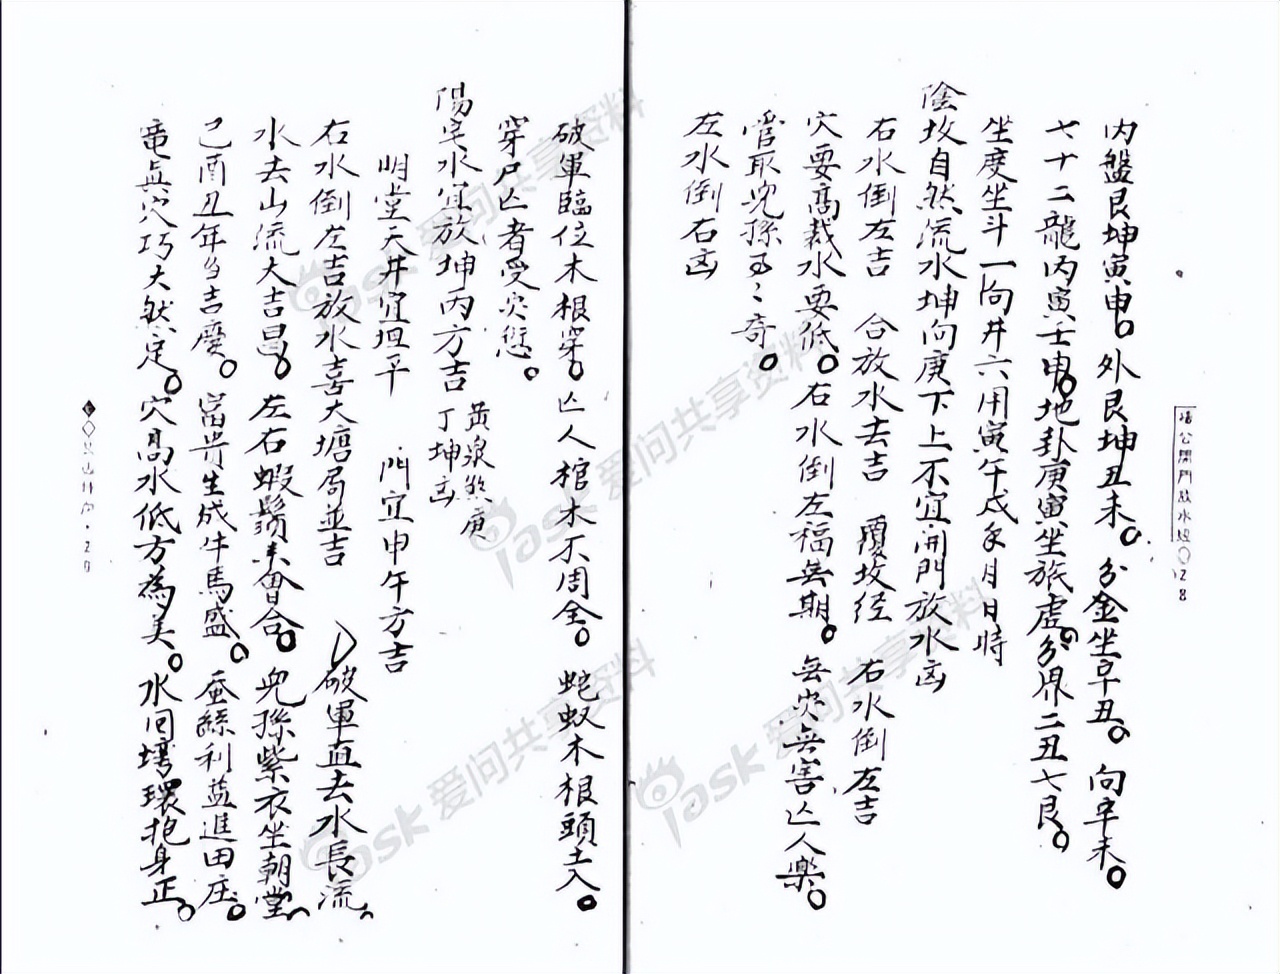 楊公開門放水經〇128
內盤艮坤寅申。外艮坤丑未。分金坐辛丑。向辛未。
七十二龍內寅壬申。地卦庚寅坐旅虛。分界二丑七艮。
坐度坐斗一向井六用寅午戌年月日時
陰坟自然流水坤向庚下上不宜開門放水凶
右水倒左吉 合放水去吉 覆坟经 右水倒左吉
穴要高裁水要低。右水倒左福無期。無灾無害亡人樂。
管取兒孫
奇。
左水倒右凶
破軍臨位木根穿。亡人棺木不周全。蛇蚁木根頭土入。
穿尸亡者受灾愆。
陽宅水宜放坤丙方吉 黃泉煞庚丁坤凶
明堂天井宜坦平 門宜申午方吉
右水倒左吉放水喜大塘局並吉 破軍直去水長流。
水去山流大吉昌。左右蝦鬚來會合。兒孫紫衣坐朝堂
己酉丑年多吉慶。富貴生成牛馬盛。蚕絲利益進田庄。
竜真穴巧大然定。穴高水低方為美。水回環抱身正。